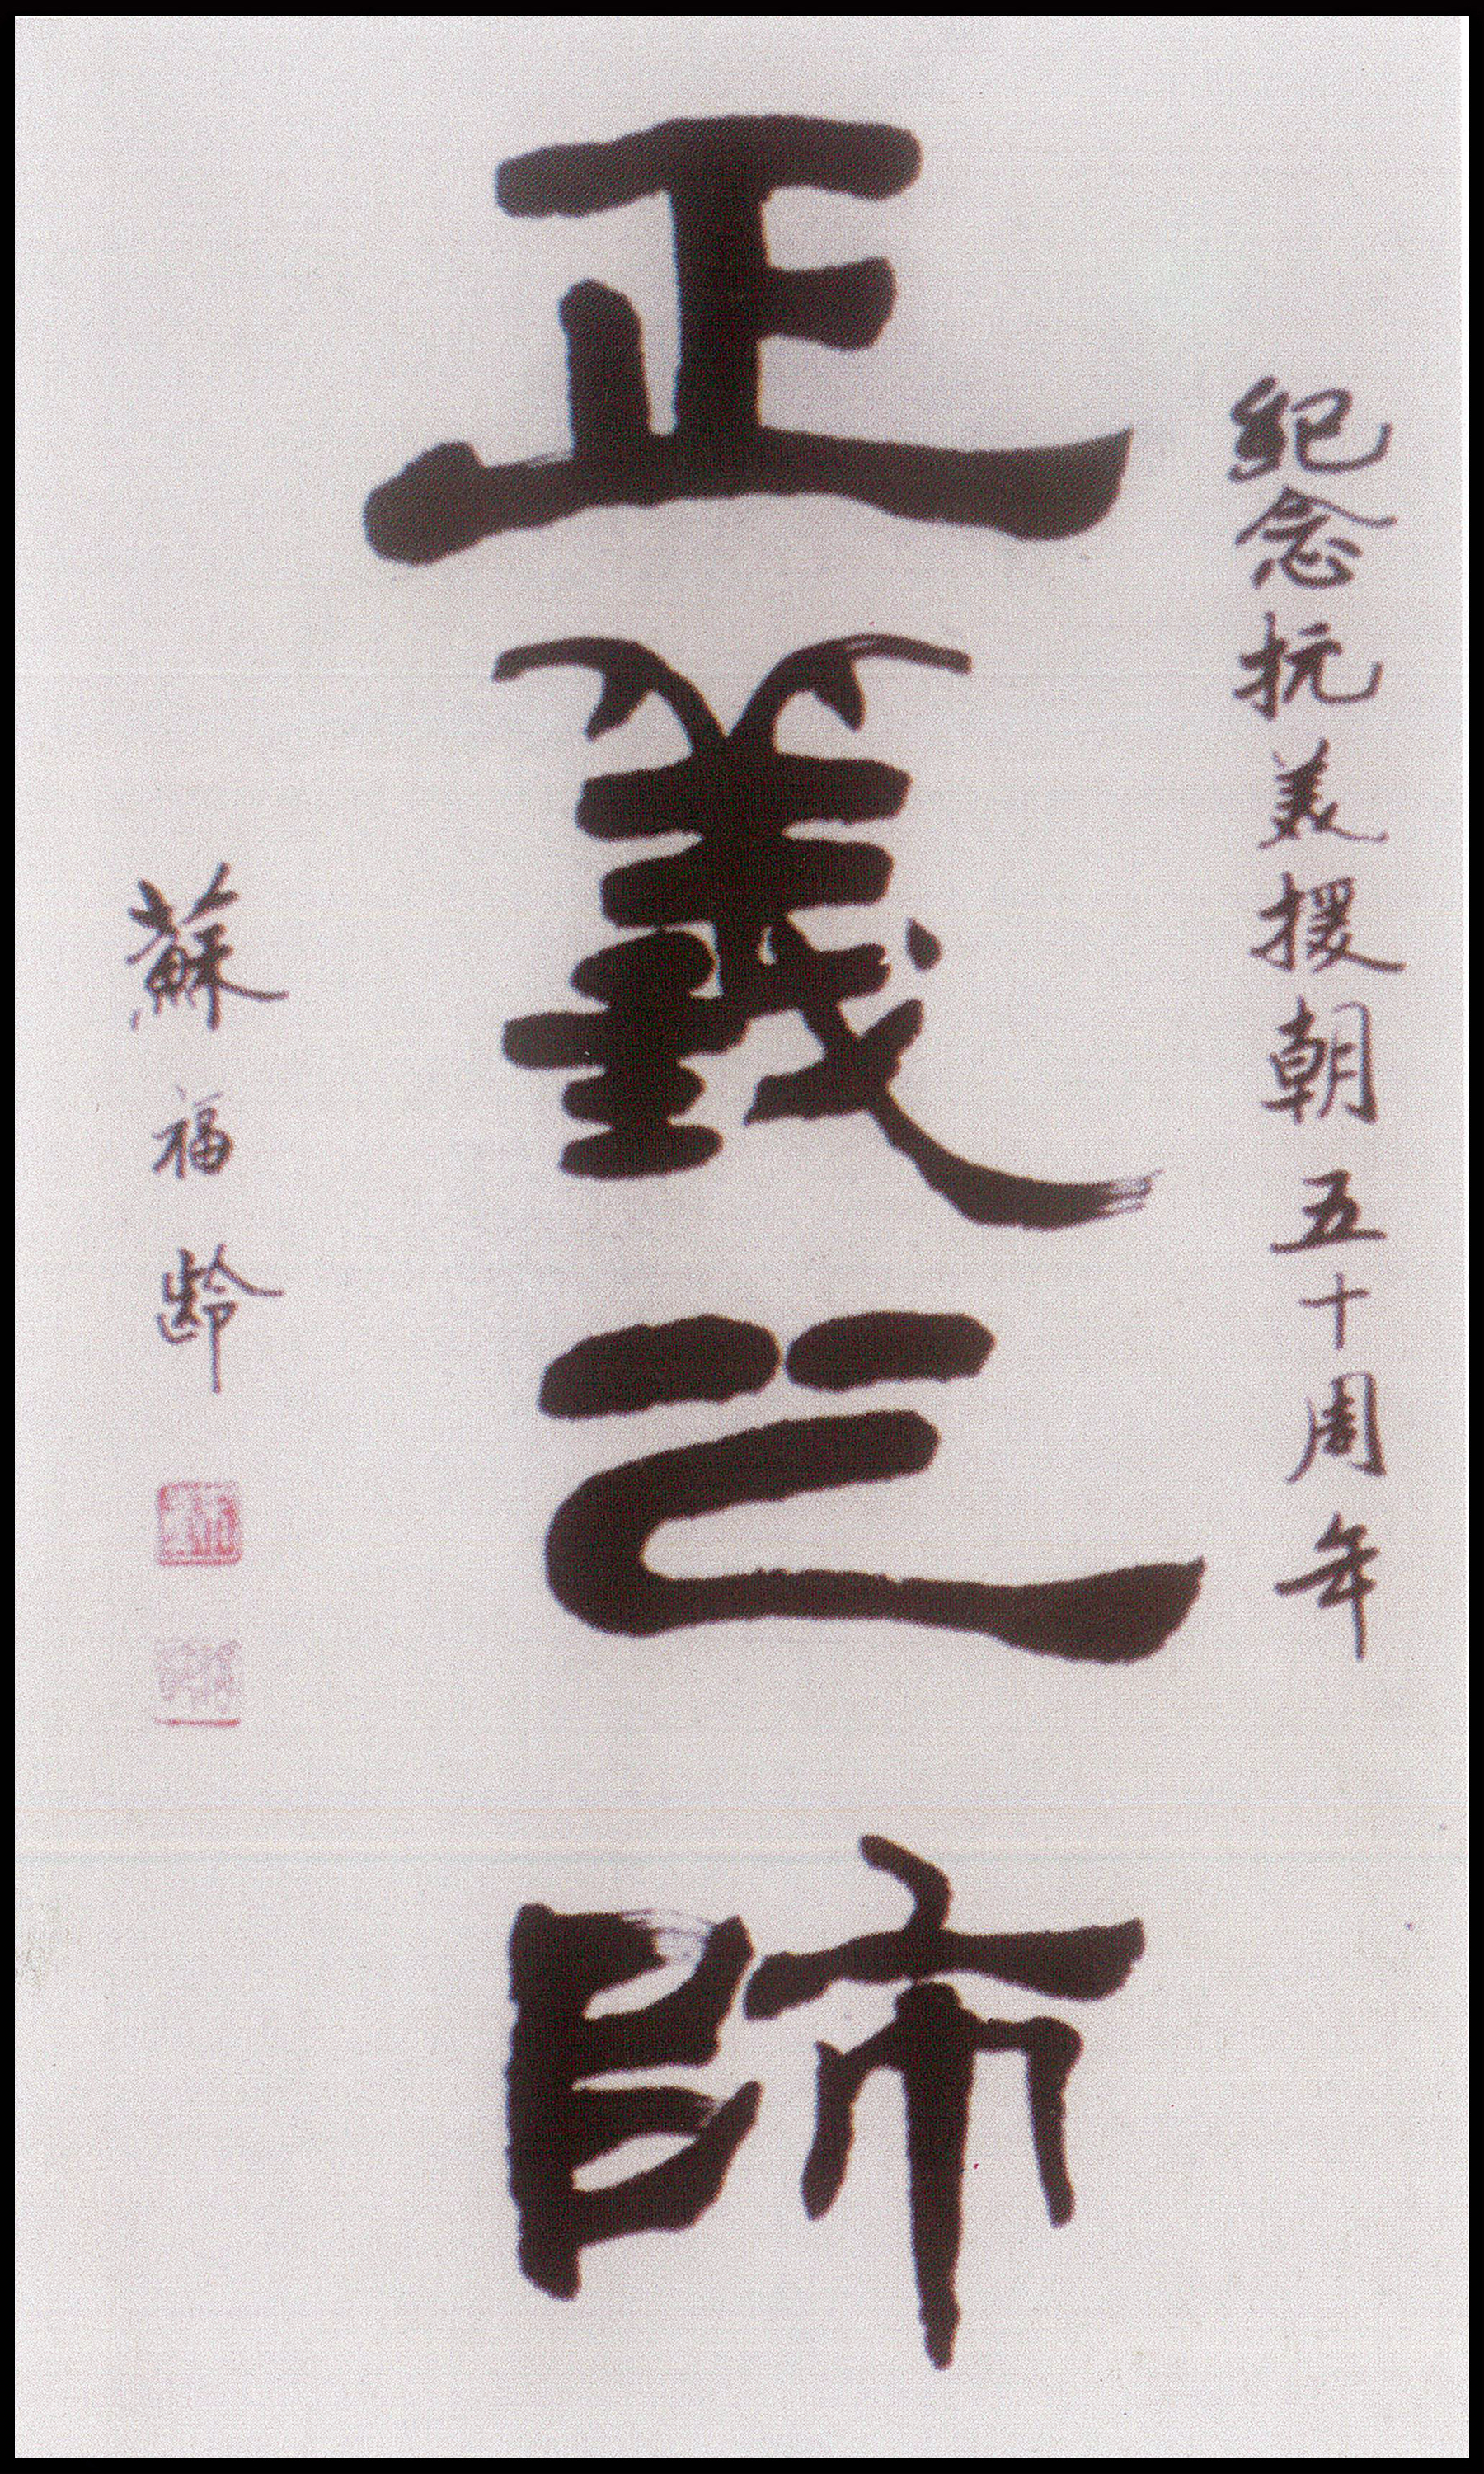 紀念抗美援朝五十周年
正義之師
蘇福齡